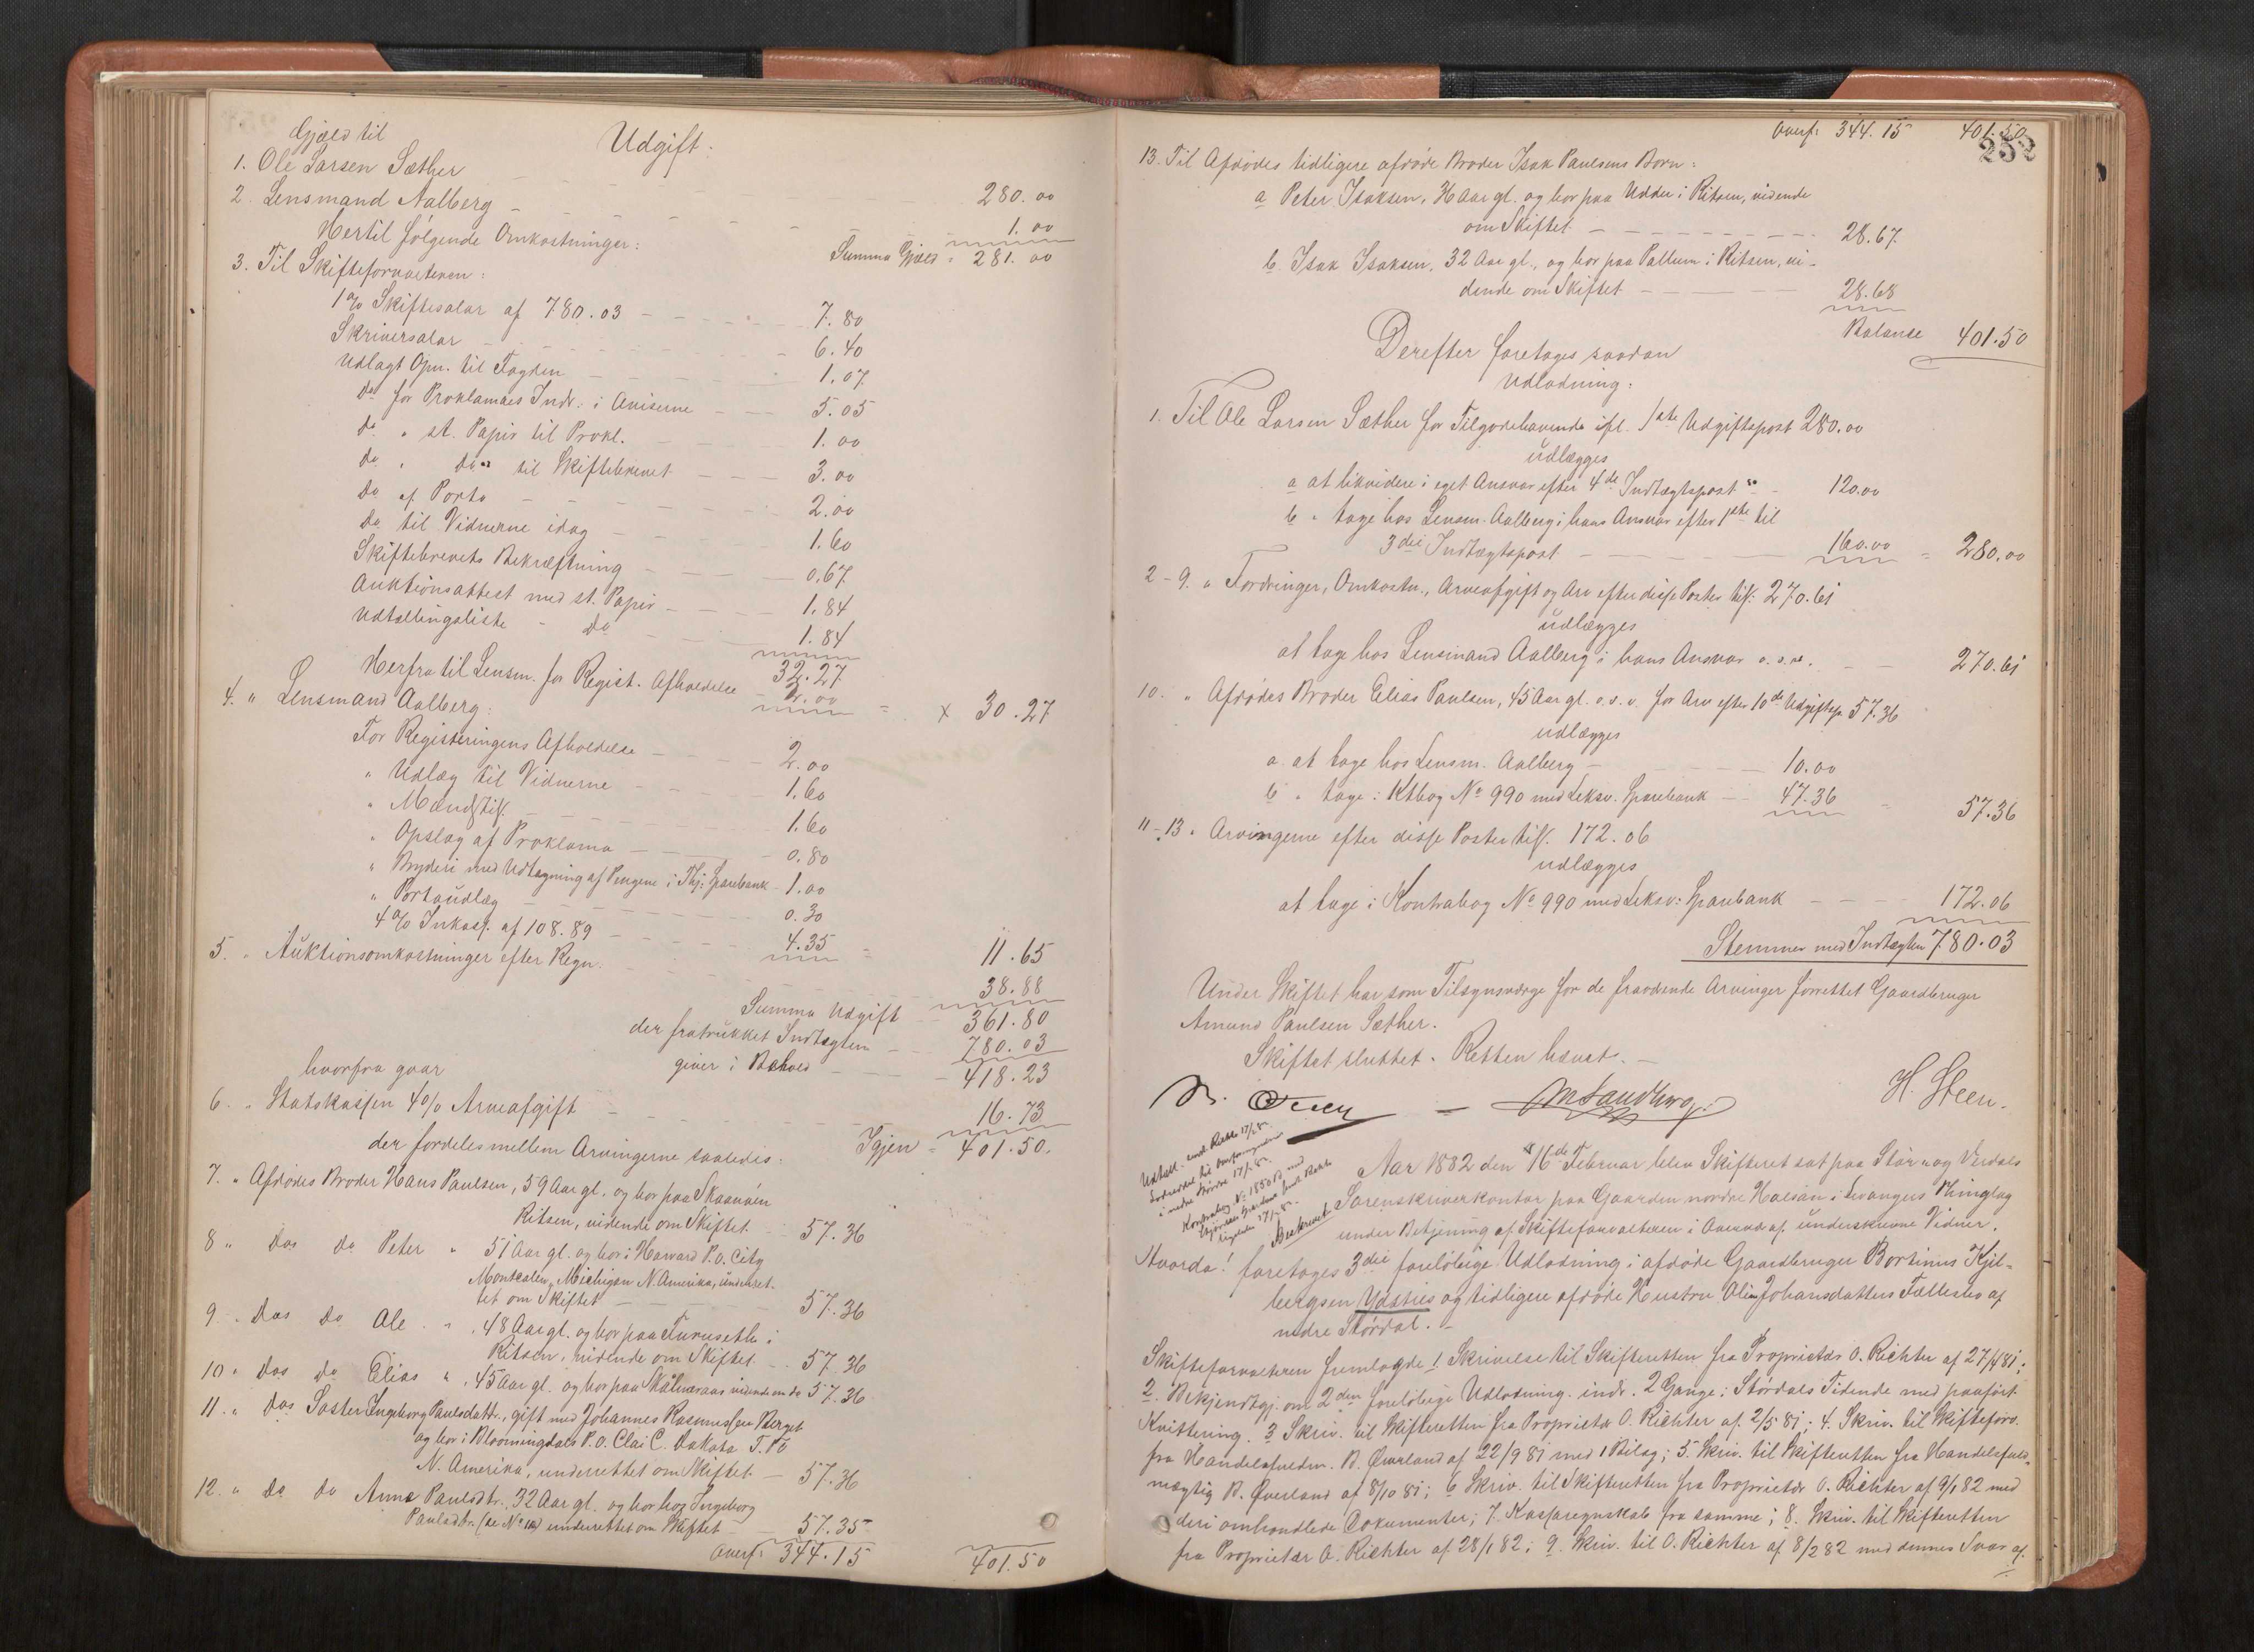 Gjæld til
Udgift:
1. Ole Larsen Sæther - - - 280.00
2. Lensmand Aalberg - - - 1.00
Summa Gjæld = 281.00
Hertil følgende Omkostninger:
3. Til Skifteforvalteren:
1% Skiftesalar af 780.03 - - - 7.80
Skriversalar - - - 6.40
Udlagt Opn. til Fogden - - - 1.07
Do for Proklamaes Indr. i Aviserne - - 5.05
do " st. Papir til Prokl. - - 1.00
do " Do " til Skiftebrevet - - 3.00
Do af Porto - - - 2.00
Do til Vidnerne idag - - 1.60
Skiftebrevets Bekræftning - - 0.67
Auktionsattest med st. Papir - - 1.84
Udtællingsliste - Do - - 1.84
32.27
Herfra til Lensm. for Regist. Afholdelse - 2.00 = x 30.27
4. " Lensmand Aalberg:
For Registeringens Afholdelse - - 2.00
" Udlæg til Vidnerne - - 1.60
" Mændstil. - - 1.60
" Opslag af Proklama - - 0.80
" Bryderi med Udtagning af Pengene i Thj: Sparebank - 1.00
" Portoudlæg - - 0.30
4% Inkass. af 108.89 - - 4.35 = 11.65
5. " Auktionsomkostninger efter Regn. - - 38.88
Summa Udgift - 361.80
der fratrukket Indtægten - - 780.03
giver i Behold - - 418.23
hvorfra gaar
6. " Statskassen 4% Arveafgift - - 16.73
Igjen = 401.50.
der fordeles mellem Arvingerne saaledes:
7. " Afdødes Broder Hans Paulsen, 59 Aar gl. og bor paa
Ritsen, vidende om Skiftet - 57.36
8 " Das do Peter " 51 Aar gl. og bor i Harvard P.O. City
Montcalm, Michigan N. Amerika, underret-
tet om Skiftet - - 57.36
9. " Das do Ole " , 48 Aar gl. og bor paa Furuseth i
Ritsen, vidende om Skiftet - - 57.36
10 " Das do Elias " , 45 Aar gl. og bor paa vidende om do 57.36
11. " Das Søster Ingeborg Paulsdattr., gift med Johannes Rasmussen Berget
og bor i Bloomingdals P.O. Clai C. Dakota T.
N. Amerika, underrettet om Skiftet - 57.36
12. " Do do Anna Paulsdtr. 32 Aar gl. og bor hos Ingeborg
Paulsdtr. (se No 11) underrettet om Skiftet - 57.35
Overf: 344.15 401.50
Overf: 344.15 401.50
252
13. Til Afdødes tidligere afdøde Broder Isak Paulsens Børn:
a Peter Isaksen, 36 Aar gl. og bor paa Udden i Ritsen, vidende
om Skiftet - - - 28.67.
b. Isak Isaksen, 32 Aar gl., og bor paa Pallum i Ritsen, vi-
dende om Skiftet - - - 28.68
Balance 401.50
Derefter foretages saadan
Udlodning:
1. Til Ole Larsen Sæther for Tilgodehavende ifl. 1ste Udgiftspost 280.00
udlægges
a at likvidere i eget Ansvar efter 4de Indtægtspost - 120.00
b " tage hos Lensm. Aalberg i hans Ansvar efter 1ste til
3die Indtægtspost - - - 160.00 = 280.00
2-9. " Fordringer, Omkostn., Arveafgift og Arv efter disse Poster tils. 270.61
udlægges
at tage hos Lensmand Aalberg i hans Ansvar o.s.v. - - 270.61
10. " Afdødes Broder Elias Paulsen, 45 Aar gl. o.s.v. for Arv efter 10de Udgiftsp. 57.36
udlægges
a. at tage hos Lensm. Aalberg - - 10.00
b " tage i Ktbog No 990 med Leksv. Sparebank - 47.36 57.36
11-13. " Arvingerne efter disse Poster tils. 172.06
udlægges
at tage i Kontrabog No 990 med Leksv: Sparebank - - - 172.06
Stemmer med Indtægten 780.03
Under Skiftet har som Tilsynsværge for de fraværende Arvinger forrettet Gaardbruger
Amund Paulsen Sæther.
Skiftet sluttet. Retten hævet. -
H. Steen.
Aar 1882 den 16de Februar blev Skifteret sat paa Stør- og Verdals
Sorenskriverkontor paa Gaarden nordre Halsan i Levangers Thinglag
under Betjening af Skifteforvalteren i Overvær af underskrevne Vidner.
Hvorda! foretoges 3die foreløbige Udlodning i afdøde Gaardbruger Bortinus Kjil-
bergsen Ydsties og tidligere afdøde Hustru Oline Johansdatters Fællesbo af
nedre Størdal. -
Skifteforvalteren fremlagde 1 Skrivelse til Skifteretten fra Proprietær O. Richter af 27/4 81;
2. Bekjendtgj. om 2den foreløbige Udlodning indr. 2 Gange i Størdals Tidende med paaført
Kvittering. 3 Skriv. til Skifteretten fra Proprietær O. Richter af 2/5 81; 4. Skriv. til Skifteforv.
fra Handelsfuldm. B. Øverland af 22/9 81 med 1 Bilag; 5. Skriv. til Skifteretten fra Handelsfuld-
mægtig B. Øverland af 8/10 81; 6 Skriv. til Skifteretten fra Proprietær O. Richter af 9/1 82 med
deri omhandlede Dokumenter; 7. Kasseregnskab fra samme; 8. Skriv. til Skifteretten
fra Proprietær O. Richter af 28/1 82; 9. Skriv. til O. Richter af 8/2 82 med dennes Svar af